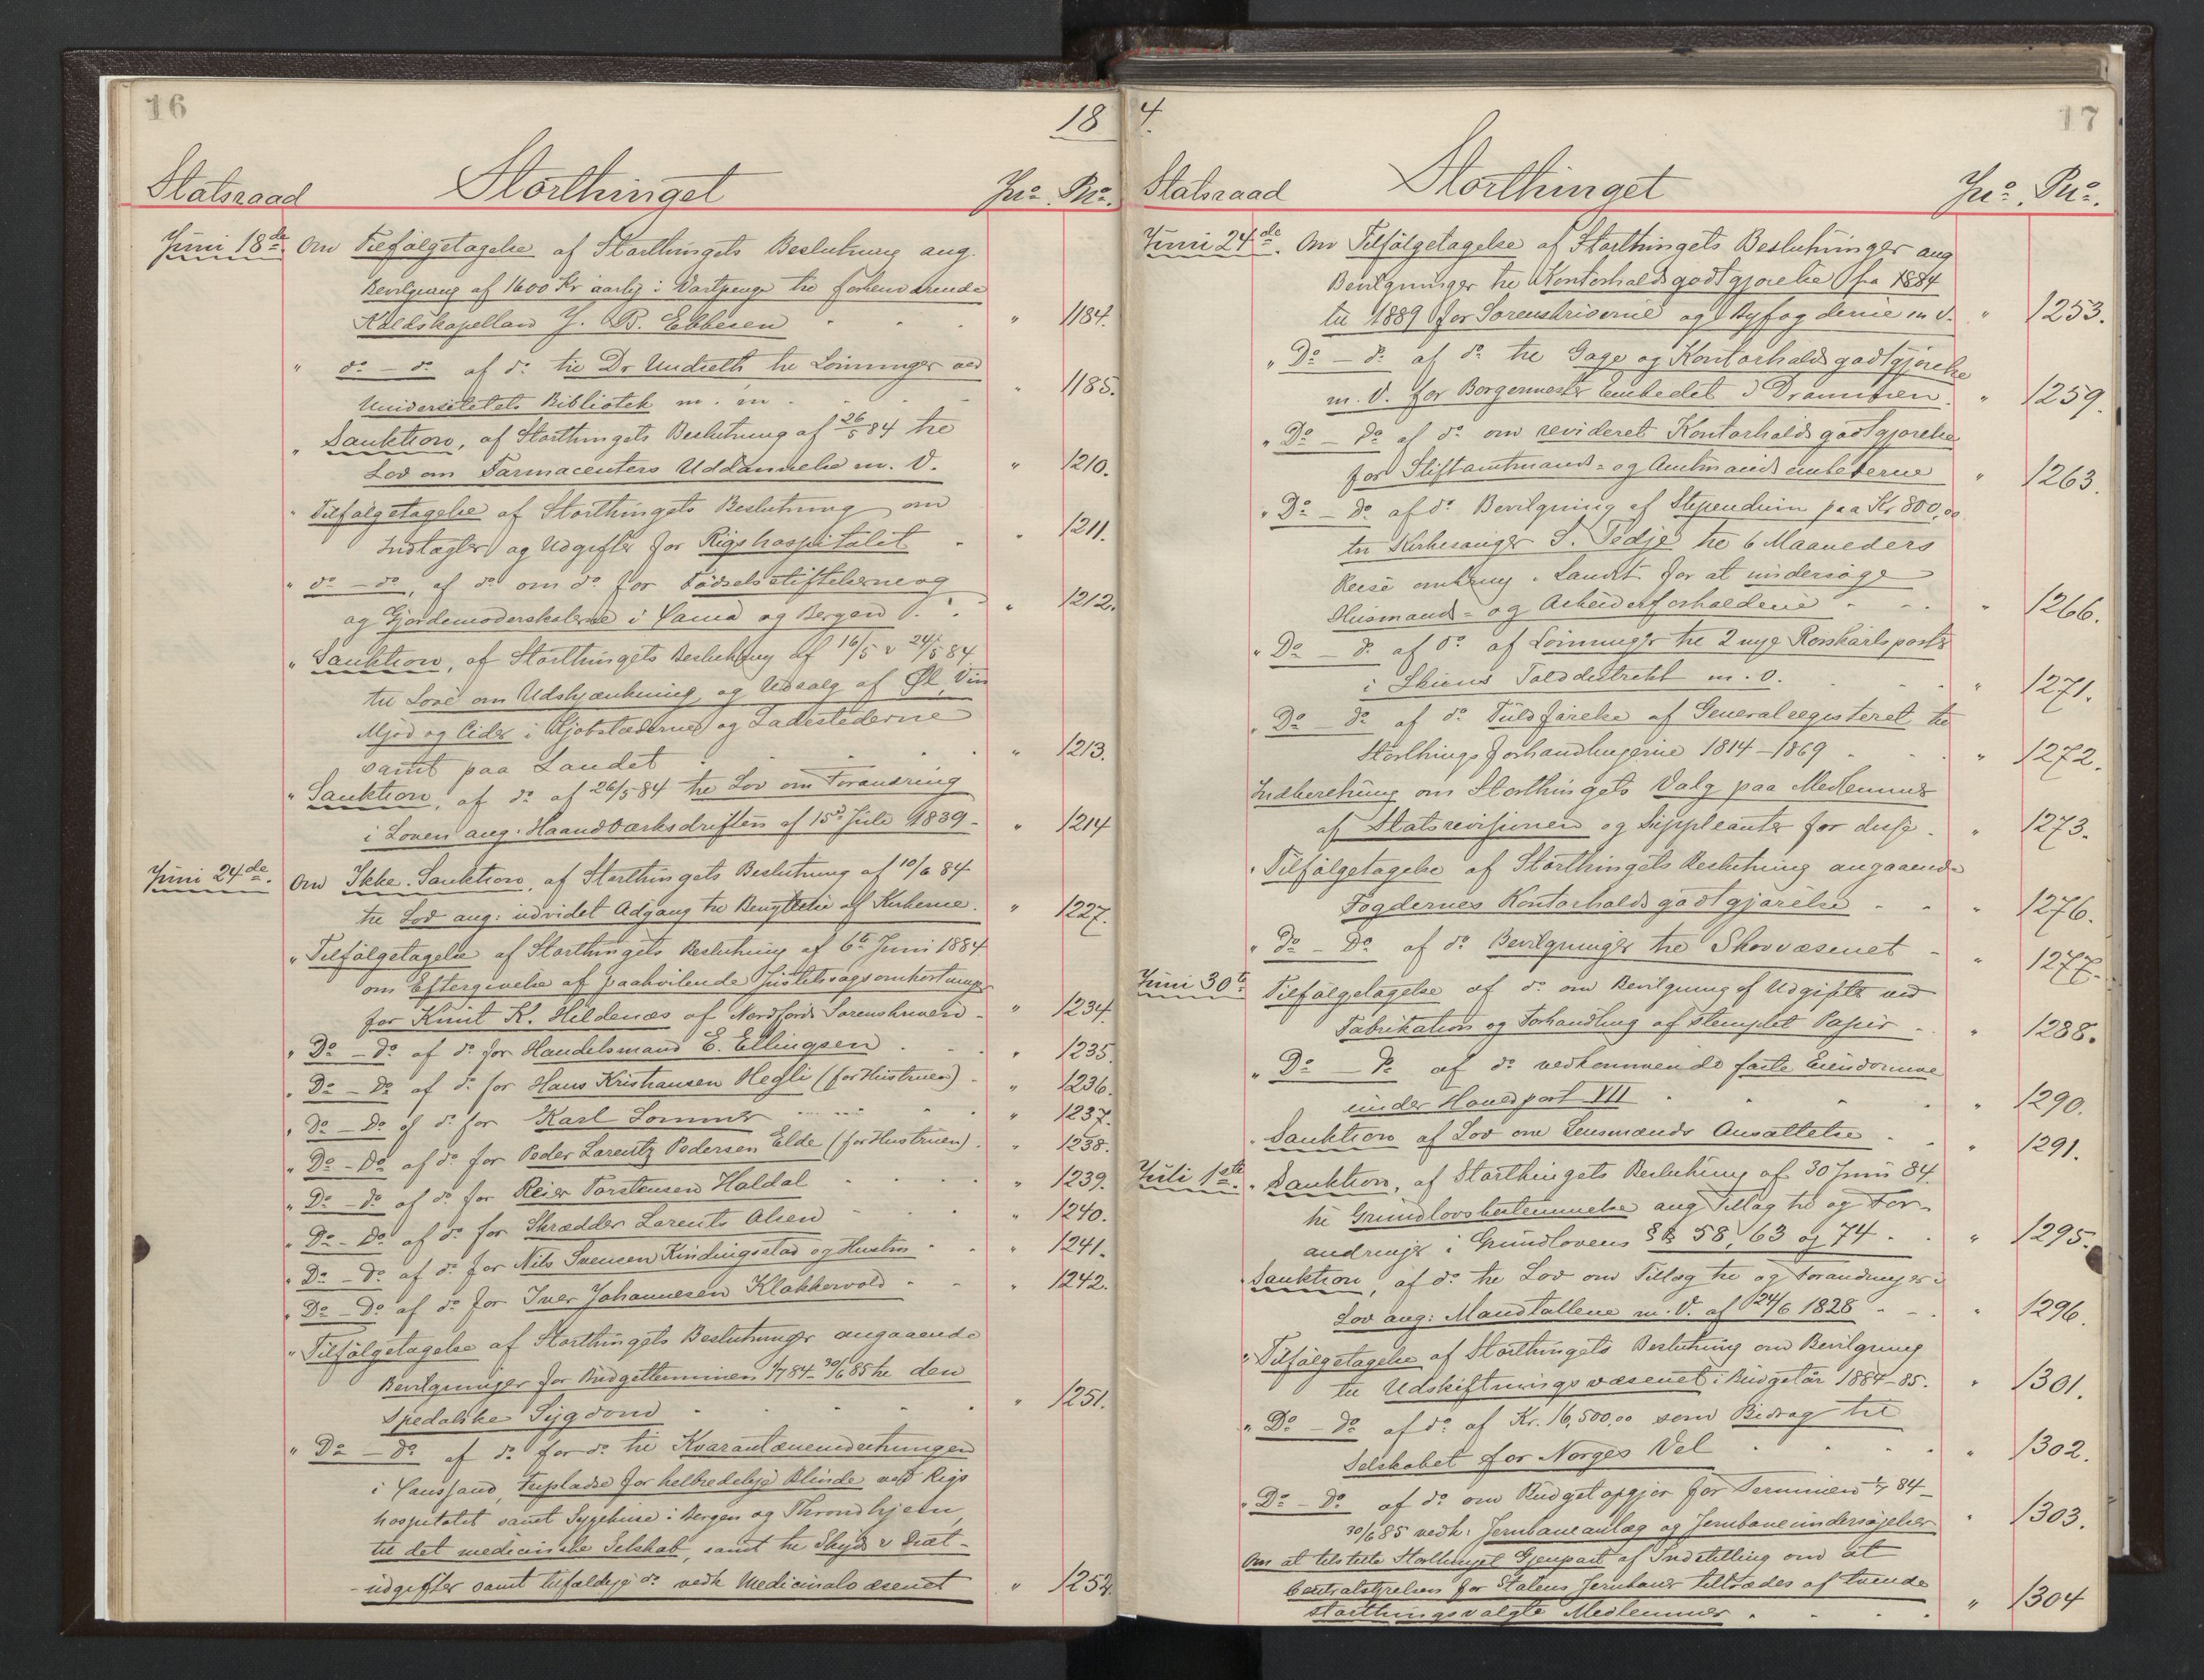 16
18
Statsraad Storthinget Jno. Pno.
Juni 18de Om Tilfølgetagelse af Storthingets Beslutning ang.
Bevilgning af 1600 Kr aarlig i Vartpenge til forhenværende
Kaldskapellan J. B. Ebbesen " 1184.
" do - do af do til Dr Undseth til Lønninger ved
Universitetets Bibliotek m. m. " 1185.
" Sanktion, af Storthingets Beslutning af 26/5 84 til
Lov om Farmaceuters Uddannelse m. V. " 1210.
" Tilfølgetagelse af Storthingets Beslutning om
Indtægter og Udgifter for Rigshospitalet " 1211.
" do - do, af do om do for Fødselsstiftelserne og
og Gjordemoderskolerne i Xania og Bergen " 1212.
" Sanktion, af Storthingets Beslutning af 16/5 & 24/5 84
til Love om Udskjænkning og Udsalg af Øl, Vin
Mjød og Cider i Kjøbstæderne og Ladestederne
samt paa Landet " 1213.
" Sanktion, af do af 26/5 84 til Lov om Forandring
i Loven ang. Haandværksdriften af 15de Juli 1839 - " 1214
Juni 24de. Om Ikke Sanktion, af Storthingets Beslutning af 10/6 84
til Lov ang: udvidet Adgang til Benyttelse af Kirkerne. " 1227.
" Tilfølgetagelse af Storthingets Beslutning af 6te Juni 1884
om Eftergivelse af paahvilende Justitssagsomkostninger
for Knut K. Hildenæs af Nordfjords Sorenskriveri - " 1234.
" Do - do af do for Handelsmand E. Ellingsen " 1235.
" Do - Do af do for Hans Kristiansen Hegli (for Hustruen) " 1236.
" Do - Do af do for Karl Sommer " 1237.
" Do - Do af do for Peder Larentz Pedersen Elde (for Hustruen). " 1238.
" Do - do af do for Reier Torstensen Haldal " 1239.
" Do - Do af do for Skrædder Larents Olsen " 1240.
" Do - Do af do for Nils Svensen Kindingsstad og Hustru " 1241.
" Do - Do af do for Iver Johannesen Klokkervold " 1242.
" Tilfølgetagelse af Storthingets Beslutninger angaaende
Bevilgninger for Budgetterminen 1/7 84 - 30/6 85 til den
Spedalske Sygdom " 1251.
" Do - do af do for do til Kvarantæneindretningen
i Xanssand, Fripladse for helbredelige Blinde ved Rigs
hospitalet samt Sygehuse i Bergen og Throndhjem,
til det medicinske Selskab, samt til Skyds & Diæt-
-udgifter samt tilfældige do vedk Medicinalvæsenet " 1252.
4.
17
Statsraad Storthinget Jno. Pno.
Juni 24de. Om Tilfølgetagelse af Storthingets Beslutninger ang
Bevilgninger til Kontorholdsgodtgjørelse fra 1884
til 1889 for Sorenskriverne og Byfogderne m V. " 1253.
" Do - do af do til Gage og Kontorholdsgodtgjørelse
m. V. for Borgermester Embedet i Drammen. " 1259.
" Do - Do af do om revideret Kontorholdsgodtgjørelse
for Stiftamtmands- og Amtmandsembederne " 1263.
" Do - Do af do Bevilgning af Stipendium paa Kr 800,00
til Kirkesanger S. Tedje til 6 Maaneders
Reise omkring i Landet for at undersøge
Husmands- og Arbeiderforholdene " 1266.
" Do - do af do af Lønninger til 2 nye Rorskarlsposter
i Skiens Tolddistrikt m. V. " 1271.
" Do - Do af do Fuldførelse af Generalregisteret til
Storthingsforhandlingerne 1814-1869 " 1272.
Indberetning om Storthingets Valg paa Medlemmer
af Statsrevisionen og Suppleanter for disse " 1273.
" Tilfølgetagelse af Storthingets Beslutning angaaende
Fogdernes Kontorholdsgodtgjørelse " 1276.
" Do - Do af do Bevilgninger til Skovvæsenet " 1277.
Juni 30te Tilfølgetagelse af do om Bevilgning af Udgifter ved
Fabrikation og Forhandling af stemplet Papir " 1288.
" Do - Do af do vedkommende faste Eiendomme
under Hovedpost VII " 1290.
" Sanktion af Lov om Lensmænds Ansættelse " 1291.
Juli 1ste. " Sanktion, af Storthingets Beslutning af 30 Juni 84.
til Grundlovsbestemmelse ang Tillæg til og For-
andringer i Grundlovens §§ 58, 63 og 74 " 1295.
Sanktion, af do til Lov om Tillæg til og Forandringer i
Lov ang: Mandtallene m. V. af 24/6 1828 " 1296.
" Tilfølgetagelse af Storthingets Beslutning om Bevilgning
til Udskiftningsvæsenet i Budgetår 1884-85. " 1301.
" Do - do af do af Kr. 16,500,00 som Bidrag til
Selskabet for Norges Vel " 1302.
" Do - Do af do om Budgetopgjør for Terminen 1/7 84-
30/6 85 vedk: Jernbaneanlæg og Jernbaneundersøgelser " 1303.
Om at tilstille Storthinget Gjenpart af Indstilling om at
Centralstyrelsen for Statens Jernbaner tiltrædes af tvende
storthingsvalgte Medlemmer " 1304